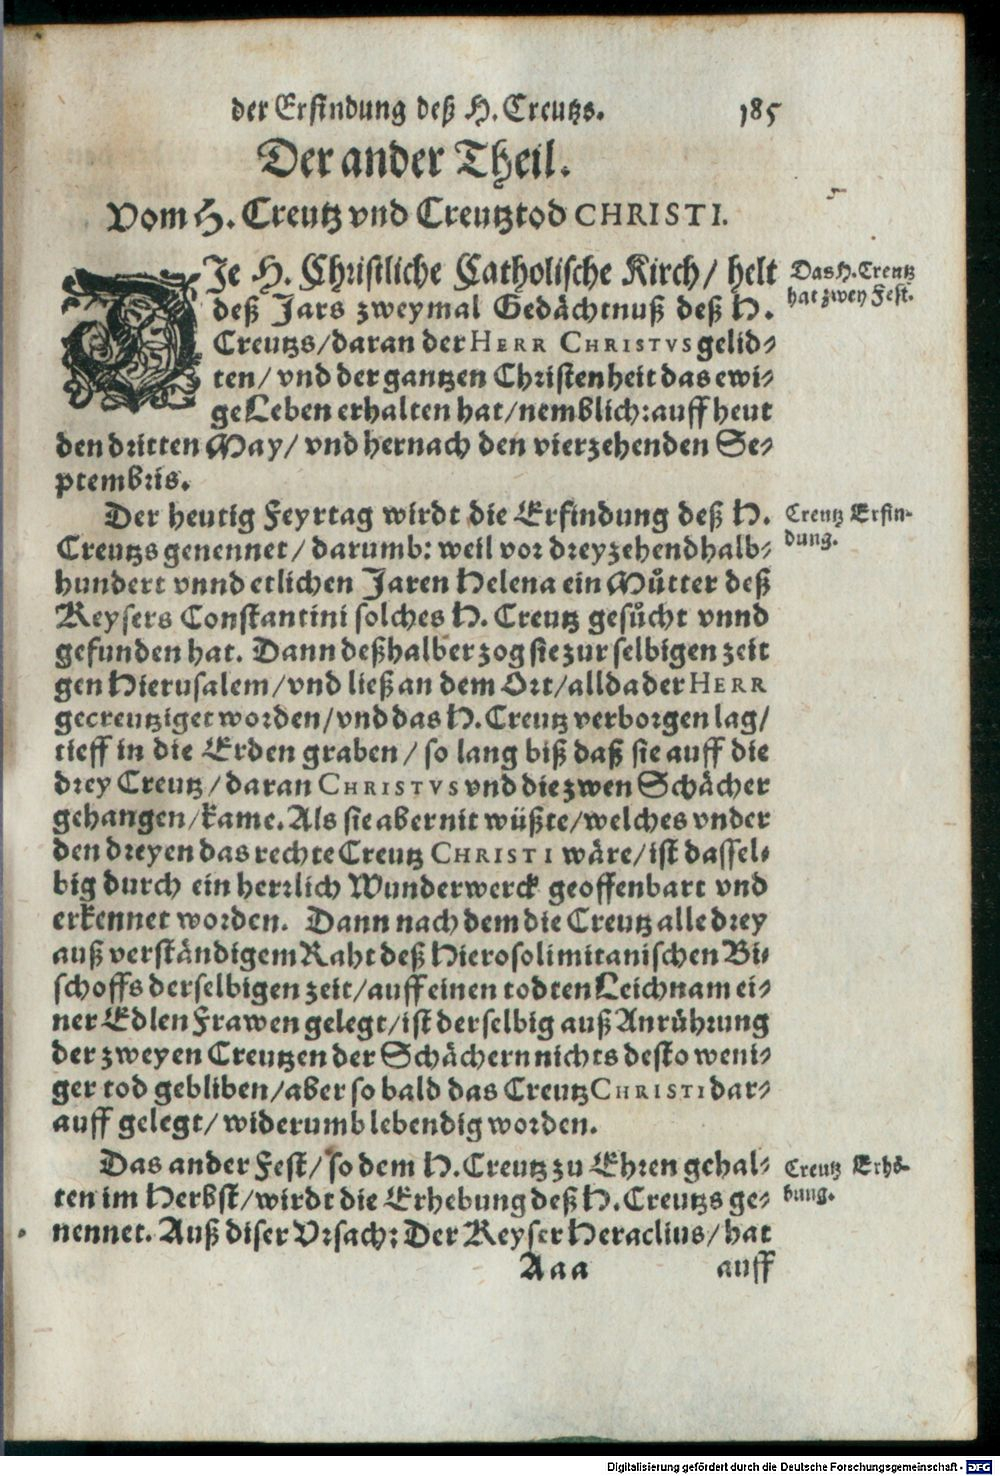 der Erfindung deß H. Creutzs. 185
Der ander Theil.
Vom H. Creutz vnd Creutztod CHRISTI.
DJe H. Christliche Catholische Kirch/ helt
deß Jars zweymal Gedächtnuß deß H.
Creutzs/daran der HERR CHRISTVS gelid-
ten/ vnd der gantzen Christenheit das ewi-
ge Leben erhalten hat/nemblich: auff heut
den dritten May/ vnd hernach den vierzehenden Se-
ptembris.
Das H. Creutz
hat zwey Fest.
Der heutig Feyrtag wirdt die Erfindung deß H.
Creutzs genennet/ darumb: weil vor dreyzehendhalb-
hundert vnnd etlichen Jaren Helena ein Můtter deß
Keysers Constantini solches H. Creutz gesůcht vnnd
gefunden hat. Dann deßhalber zog sie zur selbigen zeit
gen Hierusalem/vnd ließ an dem Ort/allda der HERR
gecreutziget worden/vnd das H. Creutz verborgen lag/
tieff in die Erden graben/ so lang biß daß sie auff die
drey Creutz/daran CHRISTVS vnd die zwen Schächer
gehangen/kame. Als sie aber nit wüßte/welches vnder
den dreyen das rechte Creutz CHRISTI wäre/ist dassel-
big durch ein herrlich Wunderwerck geoffenbart vnd
erkennet worden. Dann nach dem die Creutz alle drey
auß verständigem Raht deß Hierosolimitanischen Bi-
schoffs derselbigen zeit/auff einen todten Leichnam ei-
ner Edlen Frawen gelegt/ist derselbig auß Anrührung
der zweyen Creutzen der Schächern nichts desto weni-
ger tod gebliben/aber so bald das Creutz CHRISTI dar-
auff gelegt/ widerumb lebendig worden.
Creutz Erfin-
dung.
Das ander Fest/ so dem H. Creutz zu Ehren gehal-
ten im Herbst/wirdt die Erhebung deß H. Creutzs ge-
nennet. Auß diser Vrsach: Der Keyser Heraclius/ hat
Creutz Erhö-
bung.
Aaa auff
Digitalisierung gefördert durch die Deutsche Forschungsgemeinschaft - DFG